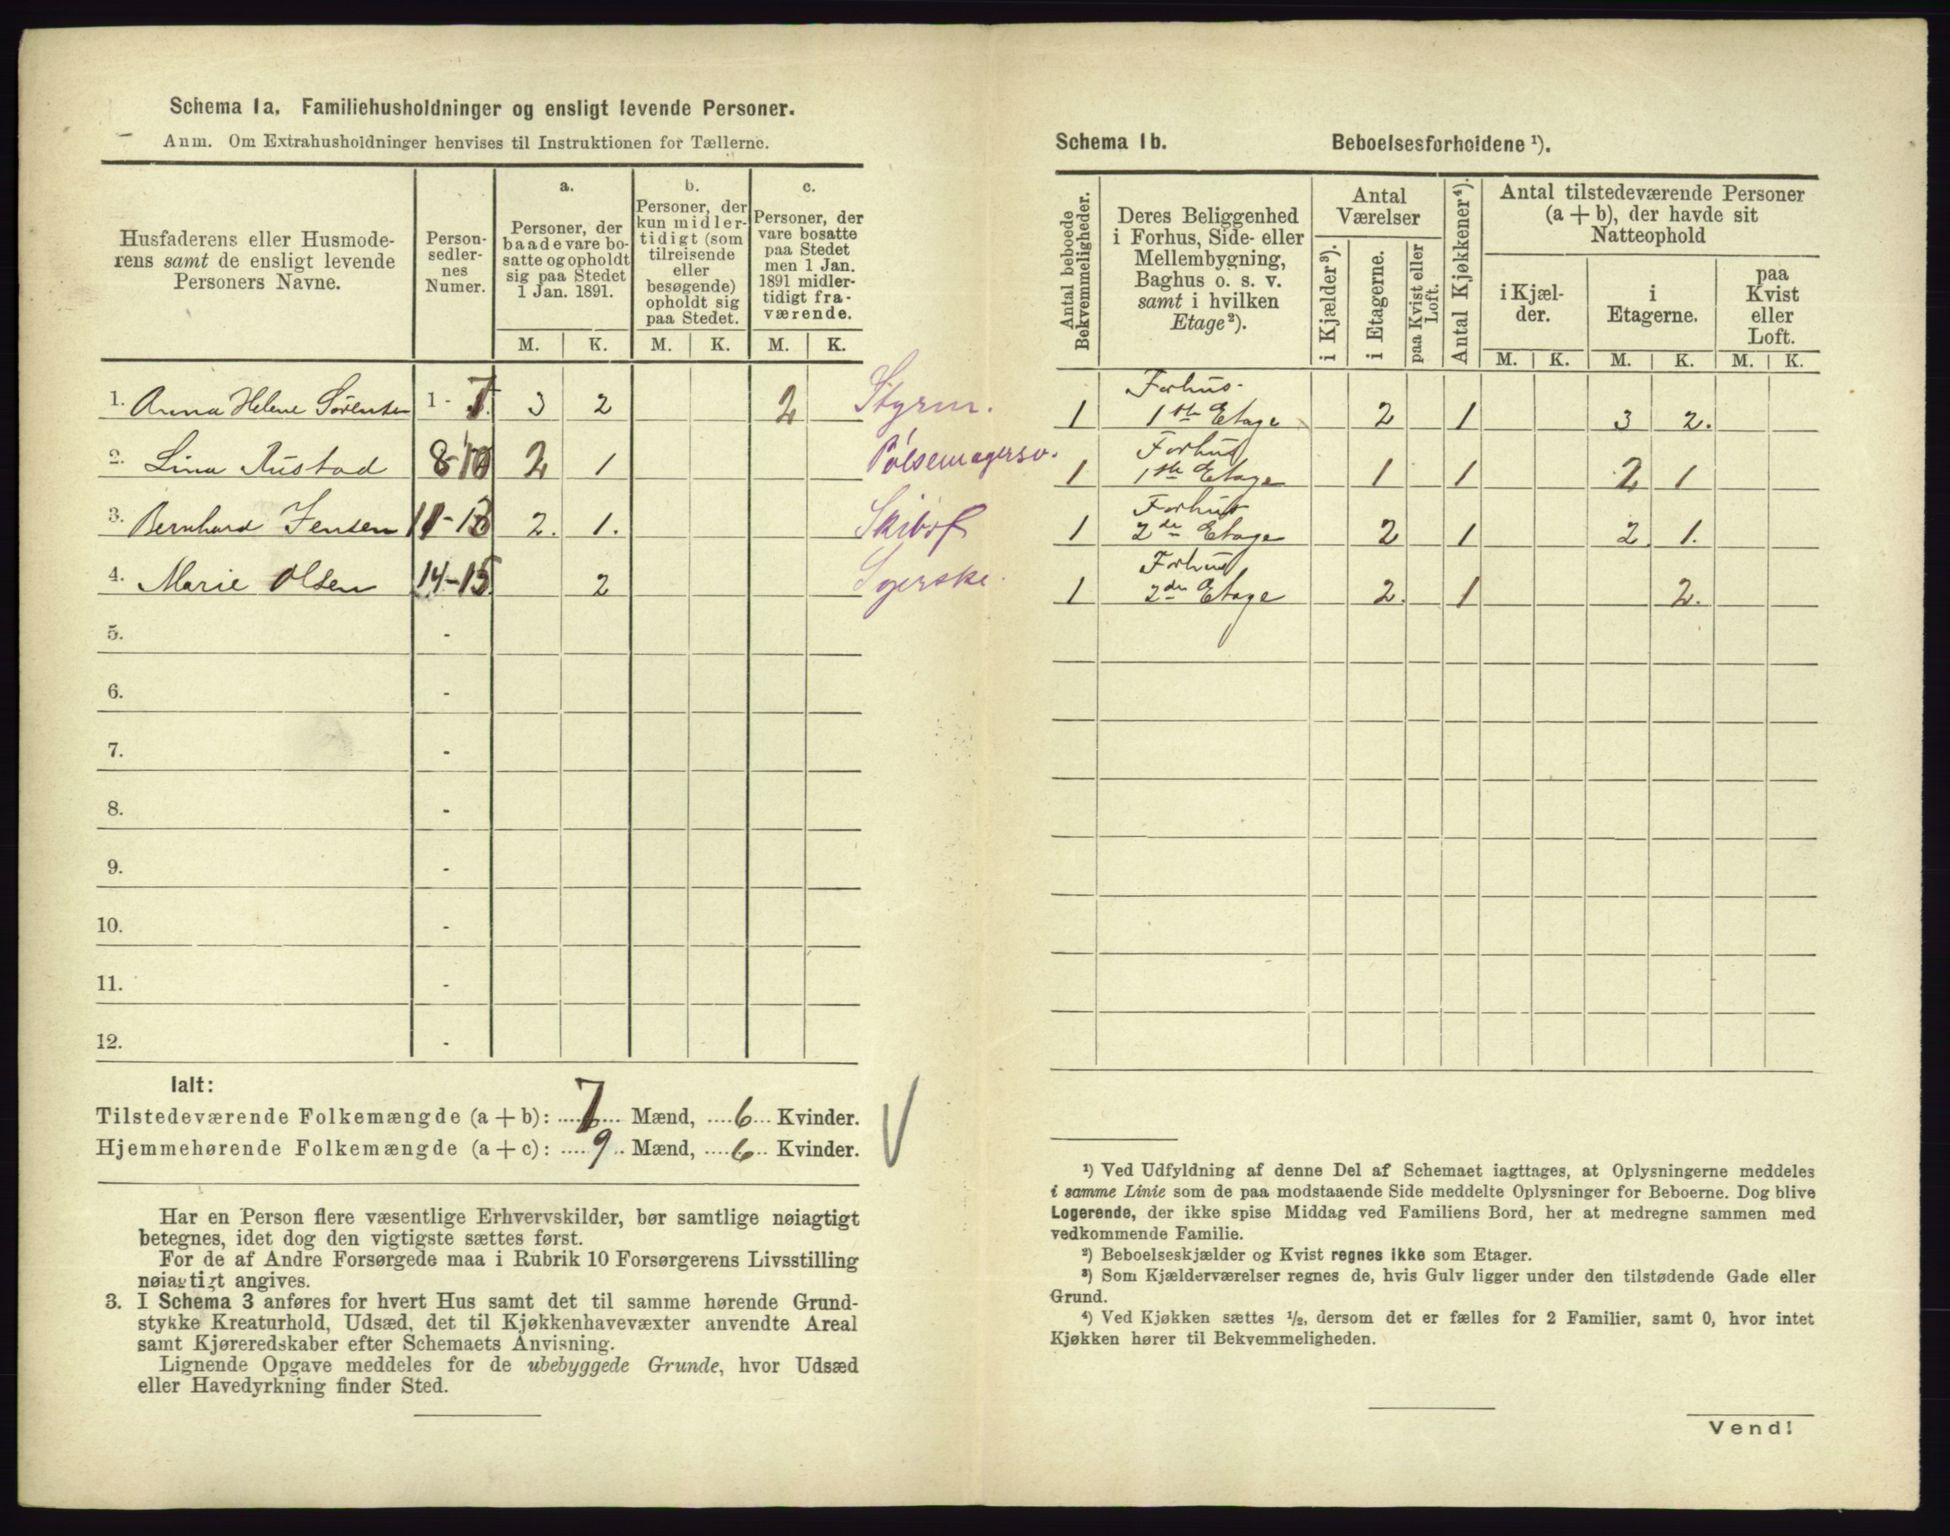 Schema 1a. Familiehusholdninger og ensligt levende Personer.
Anm. Om Extrahusholdninger henvises til Instruktionen for Tællerne.
Husfaderens eller Husmode-
rens samt de ensligt levende
Personers Navne.
Person-
sedler-
nes
Numer.
a.
Personer, der
baade vare bo-
satte og opholdt
sig paa Stedet
1 Jan. 1891.
b.
Personer, der
kun midler-
tidigt (som
tilreisende
eller
besøgende)
opholdt sig
paa Stedet.
c.
Personer, der
vare bosatte
paa Stedet
men 1 Jan.
1891 midler-
tidigt fra-
værende.
M. K. M. K. M. K.
1. Anna Helene Sørensen 1 - 7. 3 2 2 Styrm.
2. Lina Rustad 8-10 2 1 Pølsemagersv.
3. Bernhard Jensen 11-13 2. 1. Skibsf
4. Marie Olsen 14-15 2 Syerske.
5. -
6. -
7. -
8. -
9. -
10. -
11. -
12. -
Ialt:
Tilstedeværende Folkemængde (a+b): 7 Mænd, 6 Kvinder.
Hjemmehørende Folkemængde (a+c): 9 Mænd, 6 Kvinder.
Har en Person flere væsentlige Erhvervskilder, bør samtlige nøiagtigt
betegnes, idet dog den vigtigste sættes først.
For de af Andre Forsørgede maa i Rubrik 10 Forsørgerens Livsstilling
nøiagtigt angives.
3. I Schema 3 anføres for hvert Hus samt det til samme hørende Grund-
stykke Kreaturhold, Udsæd, det til Kjøkkenhavevæxter anvendte Areal
samt Kjøreredskaber efter Schemaets Anvisning.
Lignende Opgave meddeles for de ubebyggede Grunde, hvor Udsæd
eller Havedyrkning finder Sted.
Schema 1b. Beboelsesforholdene ¹).
Antal beboede
Bekvemmeligheder.
Deres Beliggenhed
i Forhus, Side- eller
Mellembygning,
Baghus o. s. v.
samt i hvilken
Etage ²).
Antal
Værelser
i Kjælder ³).
i Etagerne.
paa Kvist eller
Loft.
Antal Kjøkkener ⁴).
Antal tilstedeværende Personer
(a + b), der havde sit
Natteophold
i Kjæl-
der.
i
Etagerne.
paa
Kvist
eller
Loft.
M. K. M. K. M. K.
Forhus.
1 1ste Etage 2 1 3 2.
Forhus
1 1ste Etage 1 1 2 1
Forhus
1 2de Etage 2 1 2 1.
Forhus
1 2de Etage 2. 1 2.
¹) Ved Udfyldning af denne Del af Schemaet iagttages, at Oplysningerne meddeles
i samme Linie som de paa modstaaende Side meddelte Oplysninger for Beboerne. Dog blive
Logerende, der ikke spise Middag ved Familiens Bord, her at medregne sammen med
vedkommende Familie.
²) Beboelseskjælder og Kvist regnes ikke som Etager.
³) Som Kjælderværelser regnes de, hvis Gulv ligger under den tilstødende Gade eller
Grund.
⁴) Ved Kjøkken sættes ½, dersom det er fælles for 2 Familier, samt 0, hvor intet
Kjøkken hører til Bekvemmeligheden.
Vend!